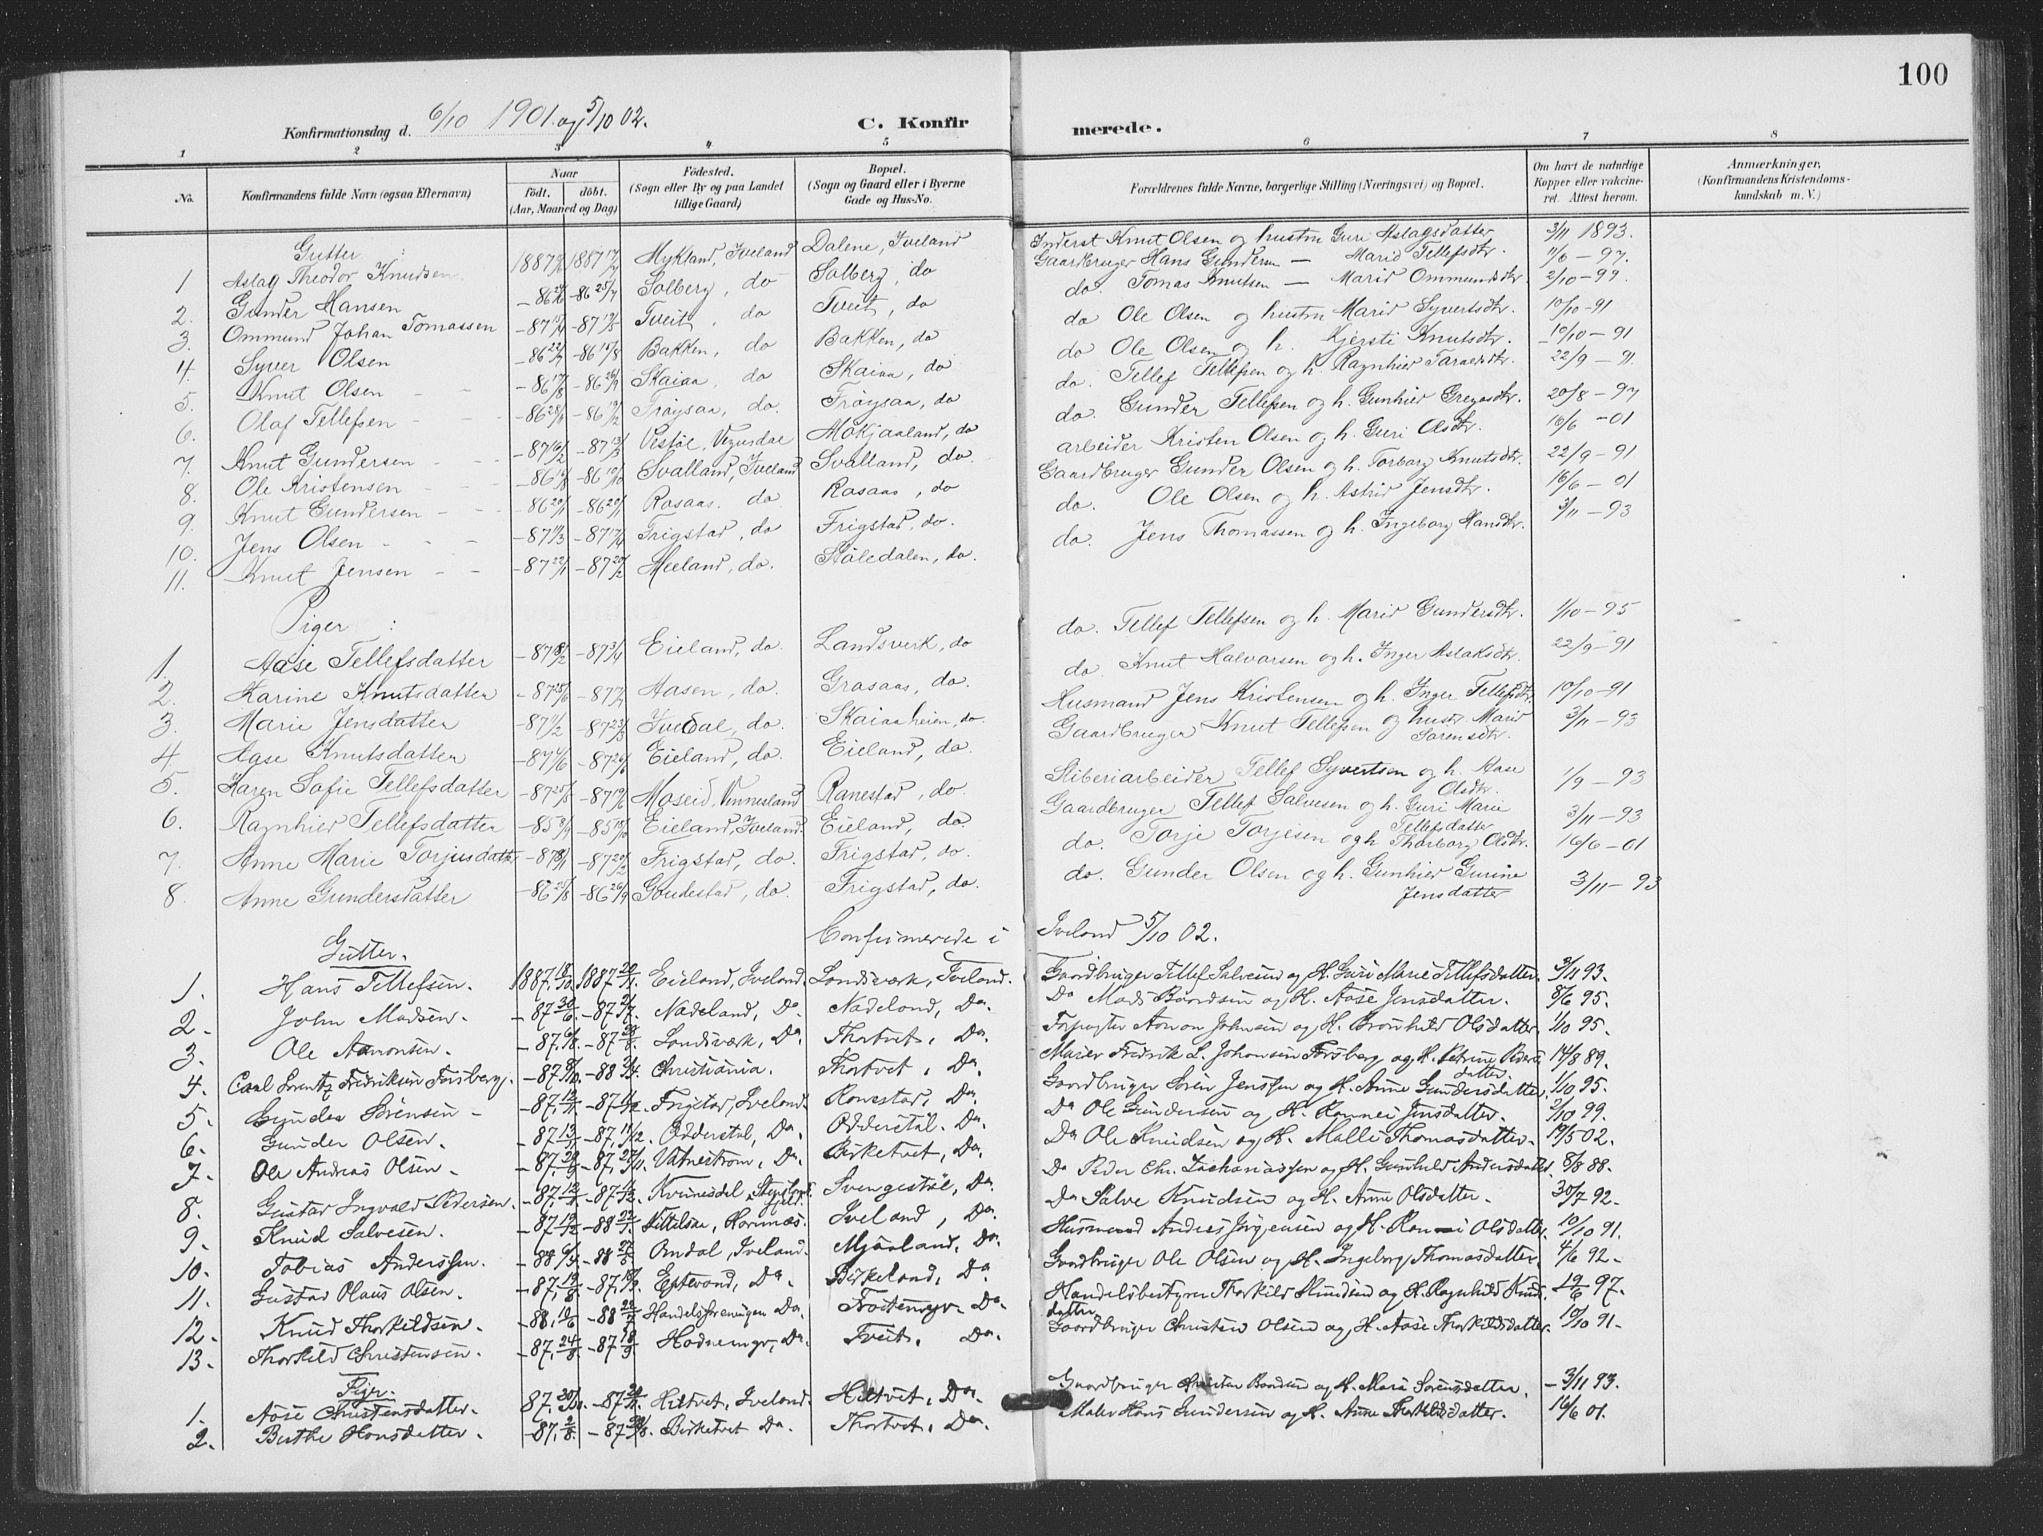 100
Konfirmationsdag d. 6/10 1901 og 5/10 02. C. Konfirmerede.
1 2 3 4 5 6 7 8
No. Konfirmandens fulde Navn (ogsaa Efternavn) Naar født. døbt. (Aar, Maaned og Dag) Fødested. (Sogn eller By og paa Landet tillige Gaard) Bopæl. (Sogn og Gaard eller i Byerne Gade og Hus-No. Forældrenes fulde Navne, borgerlige Stilling (Næringsvei) og Bopæl. Om havt de naturlige Kopper eller vakcineret. Attest herom. Anmærkninger. (Konfirmandens Kristendomskundskab m. V.)
Gutter :
1 Aslag Theodor Knudsen 1887 1887 Mykland, Iveland Dalene, Iveland Inderst Knut Olsen og hustru Guri Aslagsdatter 3/11 1893.
2. Gunder Hansen -86 -86 25/7 Solberg, do Solberg, do Gaardbruger Hans Gundersen — Marie Tellefsdtr. 11/6 - 97.
3. Ommund Johan Tomassen -87 -87 Tveit, do Tveit, do do. Tomas Knutsen — Marie Ommundsdtr. 2/10 - 99.
4. Syver Olsen -86 -86 Bakken, do Bakken, do do Ole Olsen og hustru Marie Syvertsdtr. 10/10 - 91
5. Knut Olsen -86 17/8 -86 Skaiaa, do Skaiaa, do do Ole Olsen og h. Kjersti Knutsdtr. 10/10 - 91
6. Olaf Tellefsen -86 -86 Frøysaa, do. Frøysaa, do do. Tellef Tellefsen og h. Ragnhild Taraldsdtr. 22/9 - 91.
7. Knut Gundersen -87 -87 Vegusdal Mokjaaland, do do. Gunder Tellefsen og h. Gunhild Gregasdtr. 20/8 - 97
8. Ole Kristensen -86 -86 Svalland, Iveland Svalland, do. arbeider Kristen Olsen og h. Guri Olsdtr. 16/6 - 01
9. Knut Gundersen -86 -86 Rosaas. do Rosaas, do Gaardbruger Gunder Olsen og h. Torborg Knutsdtr. 22/9 - 91
10. Jens Olsen -87 -87 Frigstad, do Frigstad, do. do. Ole Olsen og h. Astrid Jensdtr. 16/6 - 01
11. Knut Jensen -87 22/1 -87 20/2 Meeland, do. Støledalen, do. do. Jens Thomassen og h. Ingeborg Hansdtr. 3/11 - 93
Piger :
1. Aase Tellefsdatter -87 -87 3/4 Eieland, do. Landsverk, do do. Tellef Tellefsen og h. Marie Gundersdtr. 1/10 - 95
2. Karine Knutsdatter -87 -87 Aasen, do. Grosaas, do. do. Knut Halvorsen og h. Inger Aslaksdtr. 22/9 - 91
3. Marie Jensdatter -87 -87 Ivedal, do. Skaiaaheien, do. Husmand Jens Kristensen og h. Inger Tellefsdtr. 10/10 - 91
4 Aase Knutsdatter -87 -87 Eieland, do. Eieland, do. Gaardbruger Knut Tellefsen og hustr. Marie Sørensdtr. 3/11 - 93
5. Karen Sofie Tellefsdatter -87 -87 Moseid, Vennesland Ranestad, do. Sliberiarbeider Tellef Syvertsen og h. Aase Olsdtr. 1/9 - 93
6. Ragnhild Tellefsdatter -85 -85 Eieland, Iveland. Eieland, do. Gaardbruger Tellef Salvesen og h. Guri Marie Tellefsdatter 3/11 - 93
7. Anne Marie Torjusdatter -87 -87 Frigstad, do. Frigstad, do. do. Torje Torjesen og h Thorborg Olsdtr. 16/6 - 01
8. Anne Gundersdatter -86 -86 26/9 do. Frigstad, do. do. Gunder Olsen og h. Gunhild Gurine Jensdatter 3/11 - 93
Confirmerede i Iveland 5/10 02.
Gutter.
1. Hans Tellefsen. 1887 1887 Eieland, Iveland. Landsværk, Iveland. Gaardbruger Tellef Salvesen og H. Guri Marie Tellefsdatter. 3/11 93.
2. John Madsen. - 87 30/6. - 87 Nadeland, Do. Nadeland, Do. Do Mads Baardsen og H. Aase Jensdatter. 8/6 95.
3. Ole Aanonsen. - 87. - 87. Landsværk, Do. Thortvet, Do. Aanon Johnsen og H. Brønhild Olsdatter. 1/10 95.
4. Carl Lorentz Fredriksen Forsberg. - 87 - 88 Christiania. Thortvet, Do. Maler Fredrik L. Johansen Forsberg og H. Petrine Pedersdatter. 14/8 89.
5. Sørensen - 87. - 87 Frigstad, Iveland. Ranestad, Do. Gaardbruger Søren Jenssen og H. Anne Gundersdatter. 1/10 95.
6. Gunder Olsen. - 87. - 87. Odderstøl, Do. Odderstøl. Do. Do Ole Gundersen og H. Rannei Jensdatter. 2/10 99.
7. Ole Andreas Olsen. - 87. - 87. Vatnestrøm, Do. Birketvet, Do. Do Ole Knudsen og H. Malli Thomasdatter. 19/5 02.
8. Gustav Ingvald Pedersen. - 87. - 87 Svengestøl, Do. Do Peder Chr. Zachariassen og H. Gunhild Andersdatter. 8/8 88.
9. Knud Salvesen. - 87 - 88 Hornnæs. Iveland, Do. Do Salve Knudsen og H. Anne Olsdatter. 30/7 92.
10. Tobias Anderssen. - 88 - 88 Omdal, Iveland. Mjaaland, Do. Husmand Anders Jørgensen og H. Olsdatter. 10/10 91.
11. Gustav Olaus Olsen. - 87. - 87. Eptevand, Do. Birkeland, Do. Gaardbruger Ole Olsen og H. Ingeborg Thomasdatter. 4/6 92.
12. Knud Thorkildsen. - 88. - 88 Handelsforeningen Do. Do. Handelsbestyrer Thorkild Knudsen og H. Ragnhild Knudsdatter. 19/6 97.
13. Thorkild Christensen. - 87. 24/8. - 87 Do. Tveit, Do. Gaardbruger Christen Olsen og H. Aase Thorkildsdatter. 10/10 91.
Piger.
1. Aase Christensdatter. 87. - 87 Hiltvet, Iveland. Hiltvet, Do. Gaardbruger Christen Baardsen og H. Marie Sørensdatter. - 3/11 93.
2. Berthe Hansdatter. - 87. - 87 Birketvet Do. Thortvet, Do. Maler Hans Gundersen og H. Anne Thorkildsdatter. 16/6 01.